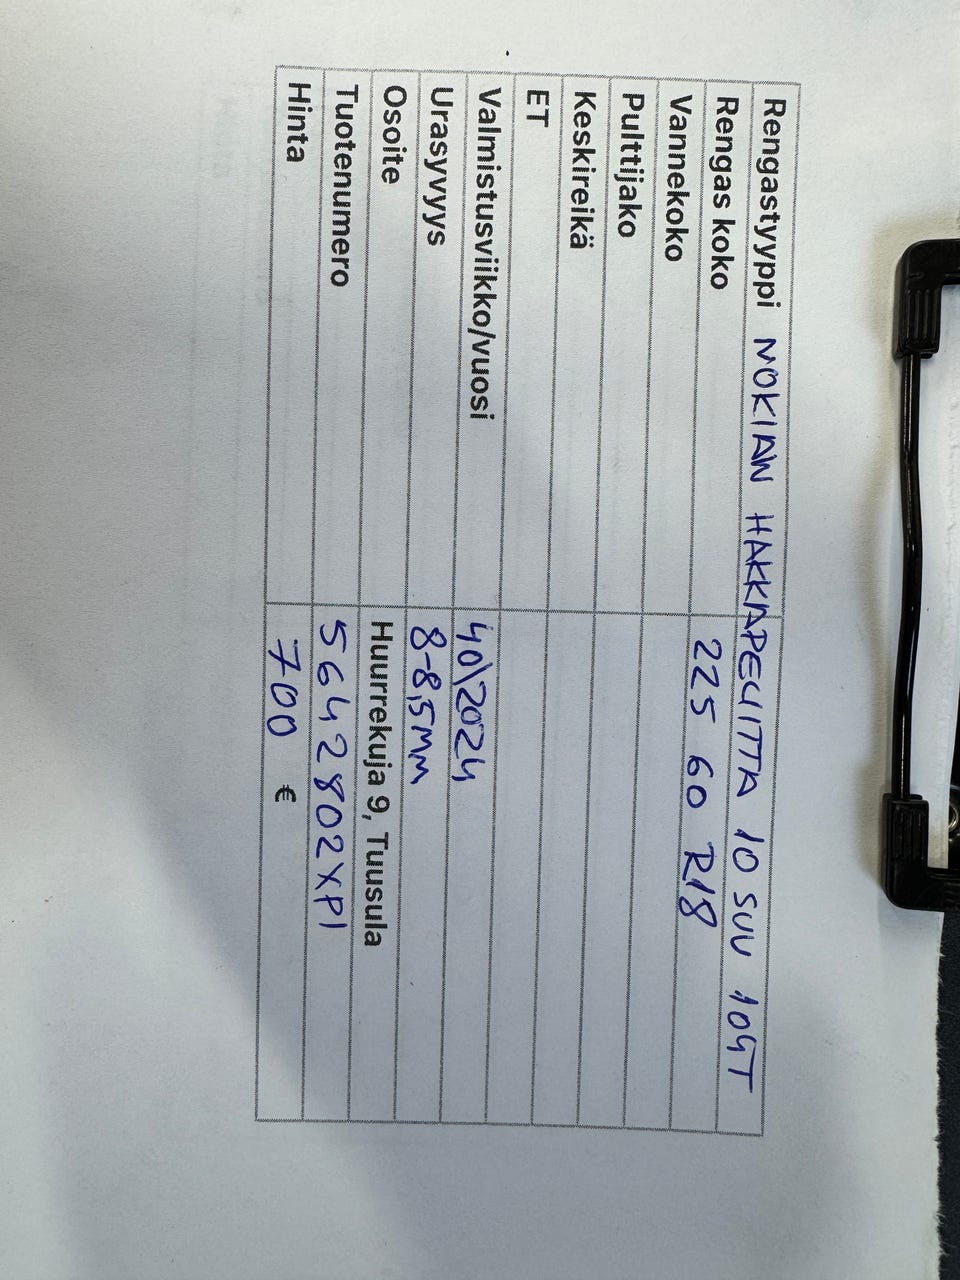 Rengastyyppi NOKIAN HAKKAPELIITTA 10 SUV 104T
Rengas koko 225 60 R18
Vannekoko
Pulttijako
Keskireikä
ET
Valmistusviikko/vuosi 40\2024
Urasyvyys 8-8,5MM
Osoite Huurrekuja 9, Tuusula
Tuotenumero 5642802XPI
Hinta 700 €